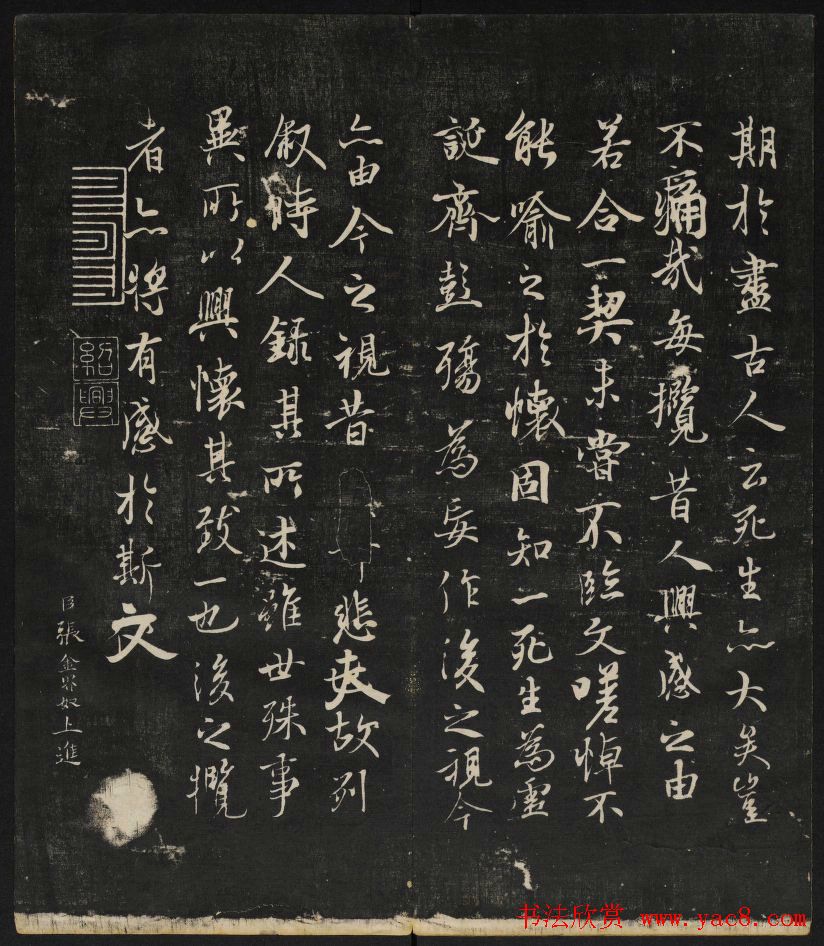 期於盡古人云死生亦大矣豈
不痛哉每攬昔人興感之由
若合一契未嘗不臨文嗟悼不
能喻之於懷固知一死生為虛
誕齊彭殤為妄作後之視今
亦由今之視昔悲夫故列
叙時人錄其所述雖世殊事
異所以興懷其致一也後之攬
者亦將有感於斯文
紹興
臣張金界奴上進
书法欣赏 www.yac8.com